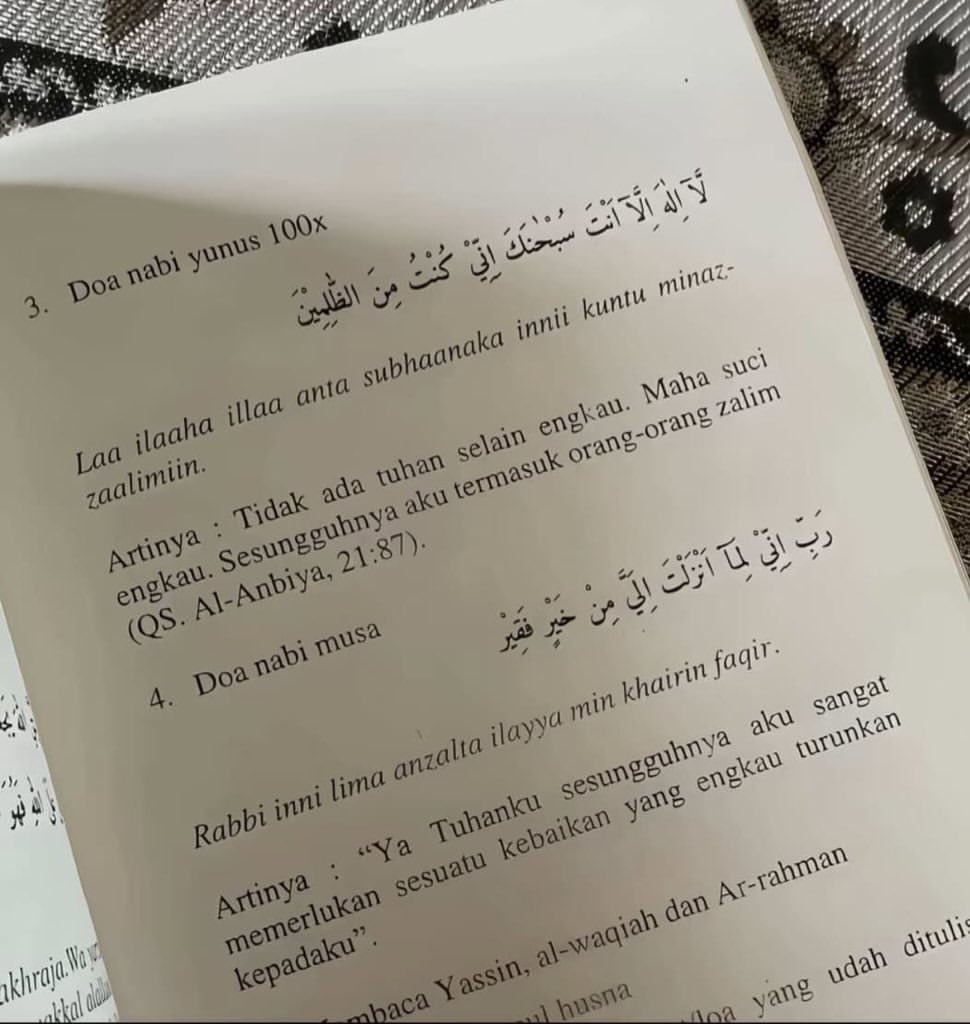 3. Doa nabi yunus 100x
لَّآ اِلٰهَ اِلَّآ اَنْتَ سُبْحٰنَكَ اِنِّيْ كُنْتُ مِنَ الظّٰلِمِيْنَ
Laa ilaaha illaa anta subhaanaka innii kuntu minaz-
zaalimiin.
Artinya : Tidak ada tuhan selain engkau. Maha suci
engkau. Sesungguhnya aku termasuk orang-orang zalim
(QS. Al-Anbiya, 21:87).
4. Doa nabi musa
رَبِّ اِنِّيْ لِمَآ اَنْزَلْتَ اِلَيَّ مِنْ خَيْرٍ فَقِيْرٌ
Rabbi inni lima anzalta ilayya min khairin faqir.
Artinya : “Ya Tuhanku sesungguhnya aku sangat
memerlukan sesuatu kebaikan yang engkau turunkan
kepadaku”.
Yassin, al-waqiah dan Ar-rahman
husna
yang udah